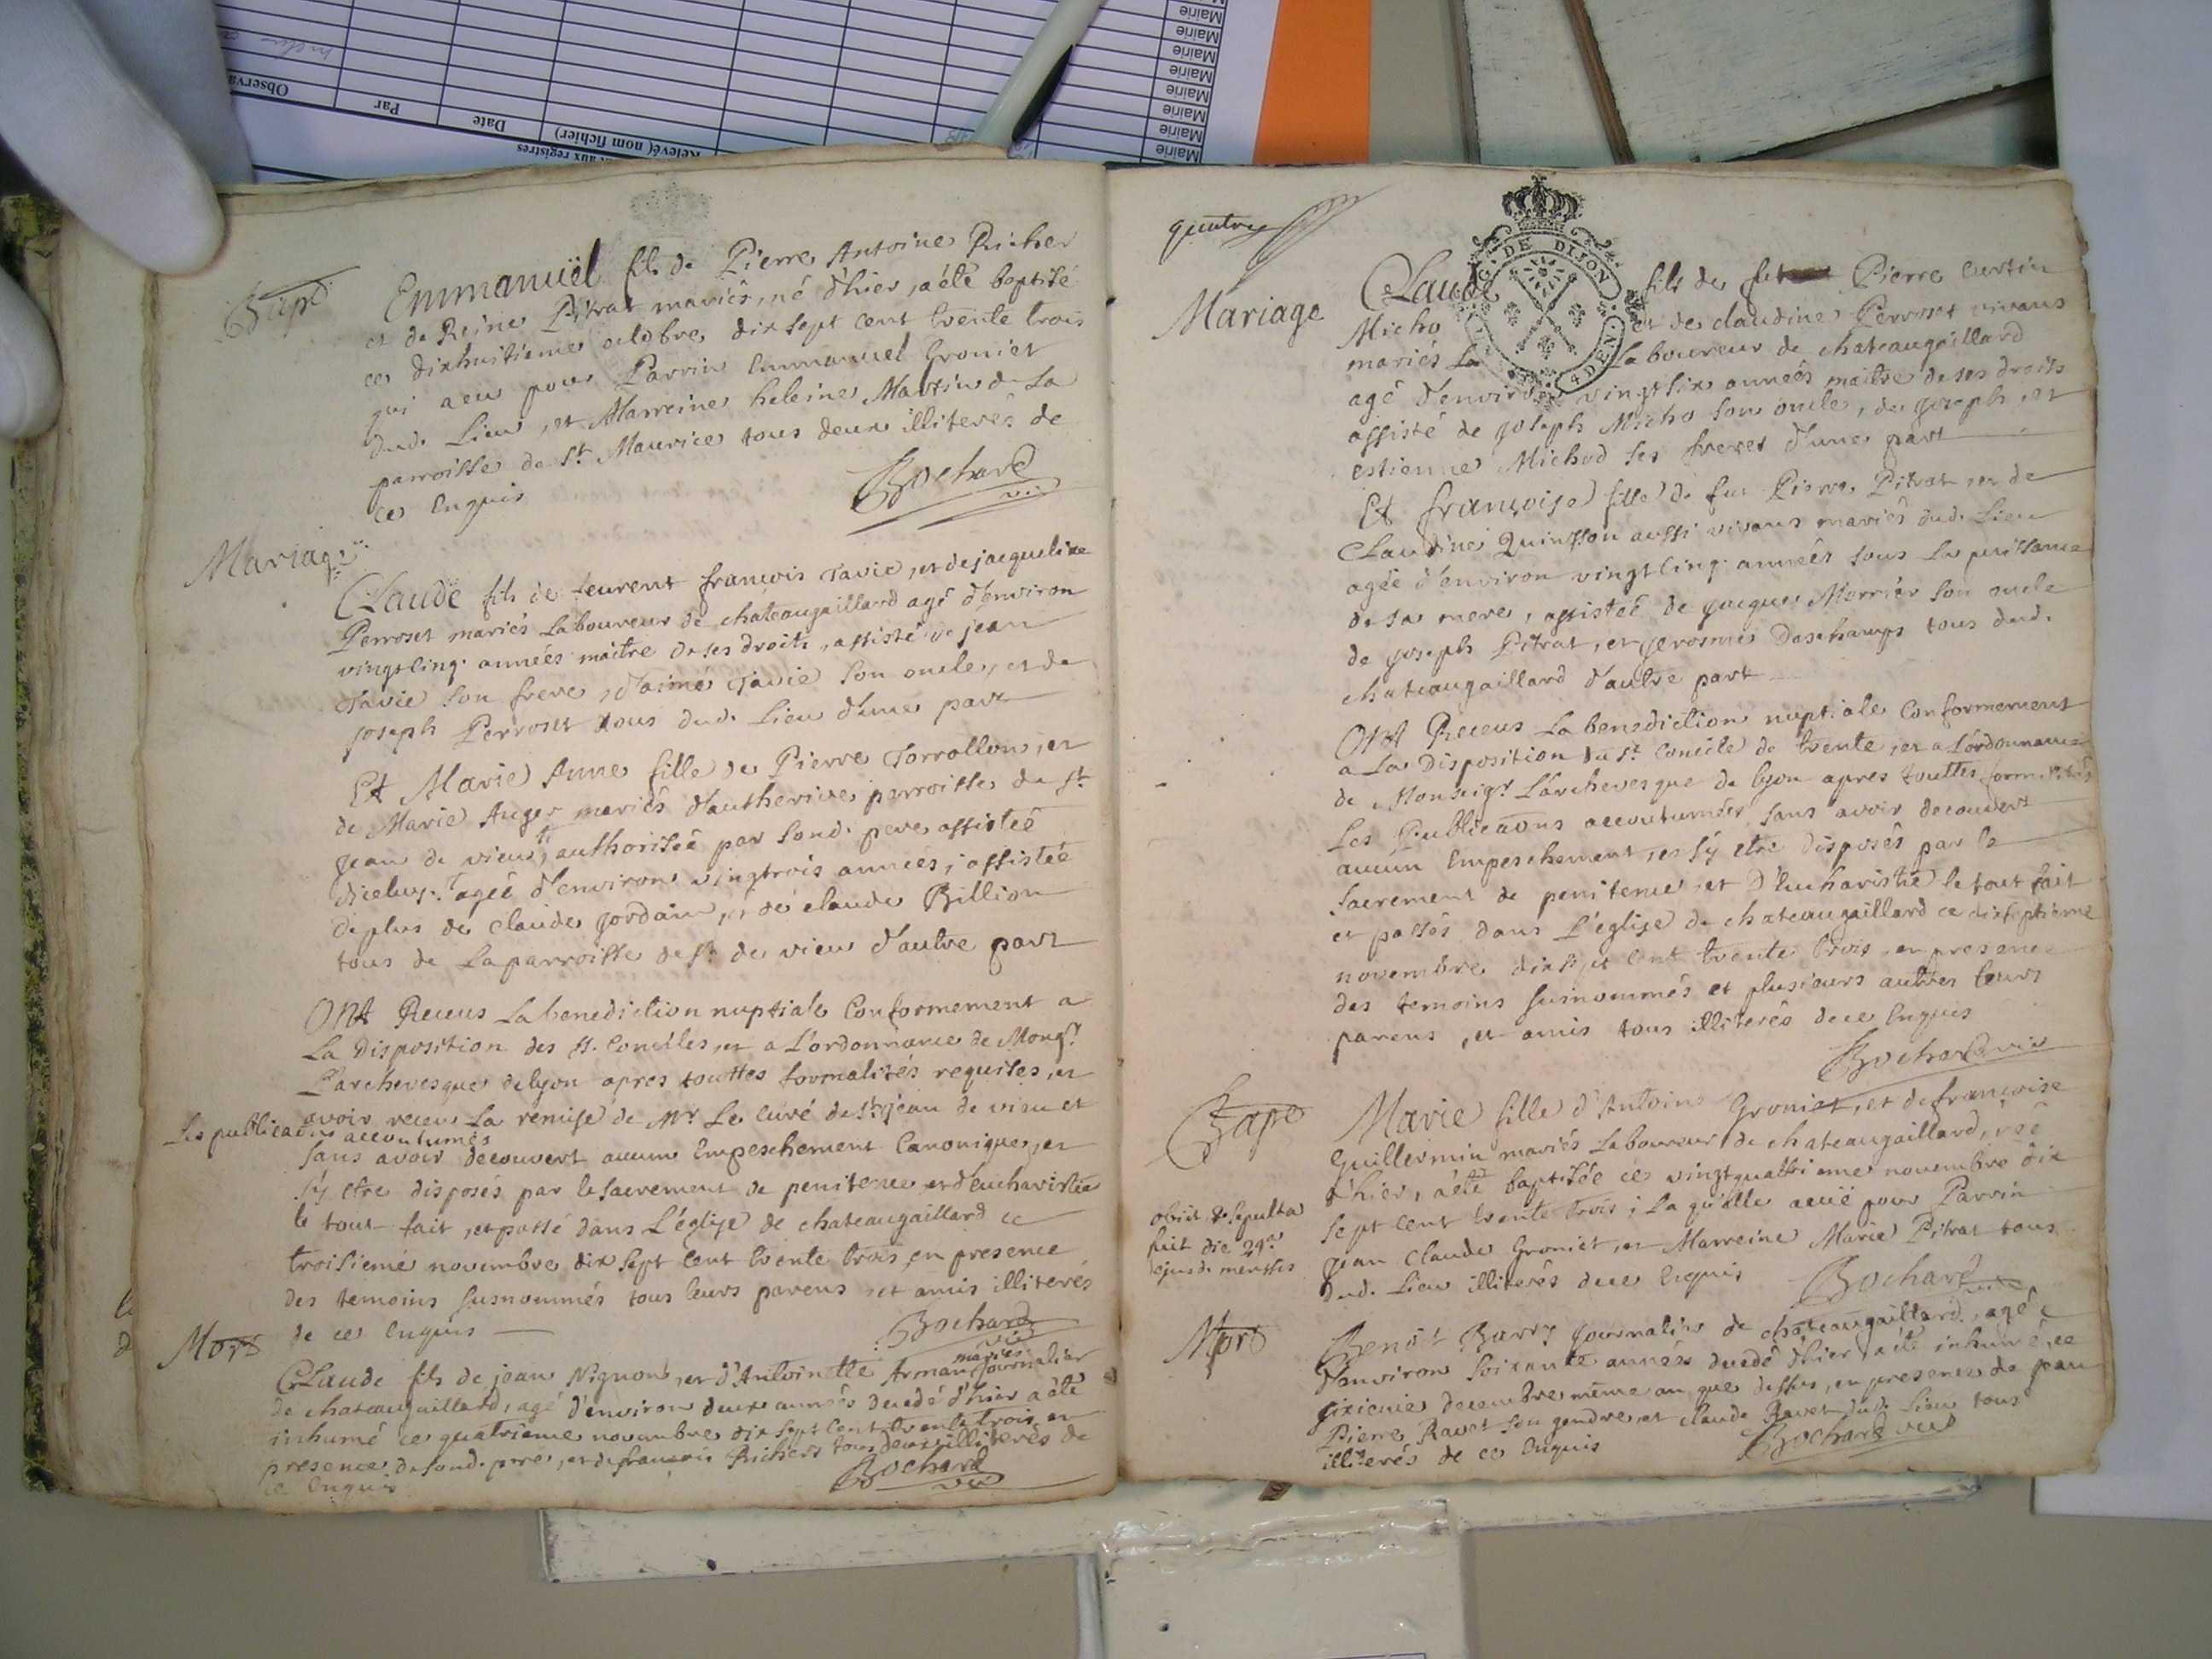 Mairie
Mairie
Mairie
Mairie
Mairie
Mairie
Mairie
Mairie
Observa
Par
Date
Relevé (nom fichier)
aux registres
Bapt
Emmanuël fils de Pierre Antoine Richer
et de Reine Pitrat mariés, né d'hier, a été baptisé
ce dixhuitieme octobre dix sept cent trente trois
qui a eu pour Parrin Emmanuel Groniet
dud. Lieu, et Marreine heleine Martin de La
parroisse de St. Maurice tous deux illiterés de
ce Enquis
Bochard
vic
Mariage
Claude fils de Leurent françois Tavie, et de jacqueline
Perroset mariés Laboureur de chateaugaillard agé d'environ
vingtcinq années maitre de ses droits, assisté de jean
Tavie son frere, d'aimé Tavie son oncle, et de
joseph Perroset tous dud. Lieu d'une part
Et Marie Anne fille de Pierre Torrollon, et
de Marie Auger mariés d'autherive parroisse de St.
jean de vieux, authorisée par sond. pere assistée
d'iceluy. agée d'environ vingtrois années, assistée
deplus de Claude jordain, et de claude Billion
tous de La parroisse de St. de vieu d'autre part
Ont Receus La benediction nuptiale Conformement a
La Disposition des St. Conciles, et a L'ordonnance de Mongr.
L'archevesque de lyon apres touttes formalités requises, et
avoir receu La remise de Mr. Le curé de St. jean de vieu et
Les publicaons accoutumés
sans avoir decouvert aucun Empeschement Canonique, et
s'y etre disposés par le sacrement de penitence et d'eucharistie
le tout fait, et passé dans L'église de chateaugaillard ce
troisieme novembre dix sept cent trente trois en presence
des temoins susnommés tous leurs parens et amis illiterés
de ce enquis
Bochard
vic
Mort
mariés
Claude fils de jean Nignon, et d'Antoinette Arman journalier
de chateaugaillard, agé d'environ deux années decedé d'hier a été
inhumé ce quatrieme novembre dix sept cent trente trois en
presence de sond. pere, et de francois Richers tous deux illiterés de
ce enquis
Bochard
vic
quatre
DE DIJON
4 DEN
Mariage
Claude fils de fut Pierre Curtin
Micho et de claudine Perroset vivans
mariés La Laboureur de chateaugaillard
agé d'environ vingtsix années maitre de ses droits
assisté de joseph Micho son oncle, de joseph, et
estienne Michod ses freres d'une part
Et françoise fille de fut Pierre Pitrat et de
Claudine Quinsson aussi vivans mariés dud. Lieu
agée d'environ vingtcinq années sous La puissance
de sa mere, assistée de jacques Merrier son oncle
de joseph Pitrat, et jerosme Deschamps tous dud.
chateaugaillard d'autre part
Ont Receus La benediction nuptiale Conformement
a La Disposition du St. Concile de trente, et a L'ordonnance
de Monseigr. L'archevesque de lyon apres touttes formalités
Les Publicaons accoutumées sans avoir decouvert
aucun Empeschement, et s'y etre disposés par le
sacrement de penitence, et d'Eucharistie le tout fait
et passés dans L'église de chateaugaillard ce dixseptieme
novembre dix sept cent trente trois en presence
des temoins susnommés et plusieurs autres leurs
parens, et amis tous illiterés de ce Enquis
Bochard vic
Bapt
Marie fille d'Antoine Groniet, et de francoise
Guillermin mariés Laboureur de chateaugaillard, née
d'hier, a été baptisée ce vingtquattrieme novembre dix
sept cent trente trois; La qu'elle a eüe pour Parrin
jean Claude Groniet, et Marreine Marie Pitrat tous
dud. Lieu illiterés de ce Enquis
Bochard
vic
obiit & sepulta
fuit die 29a.
ejusd. mensis
Mort
Benoit Barry journalier de chateaugaillard, agé
d'environ soixante années decedé d'hier a été inhumé, ce
sixieme decembre même an que dessus, en presence de jean
Pierre Ravet son gendre, et claude Ravet dud. Lieu tous
illiterés de ce enquis
Bochard vic